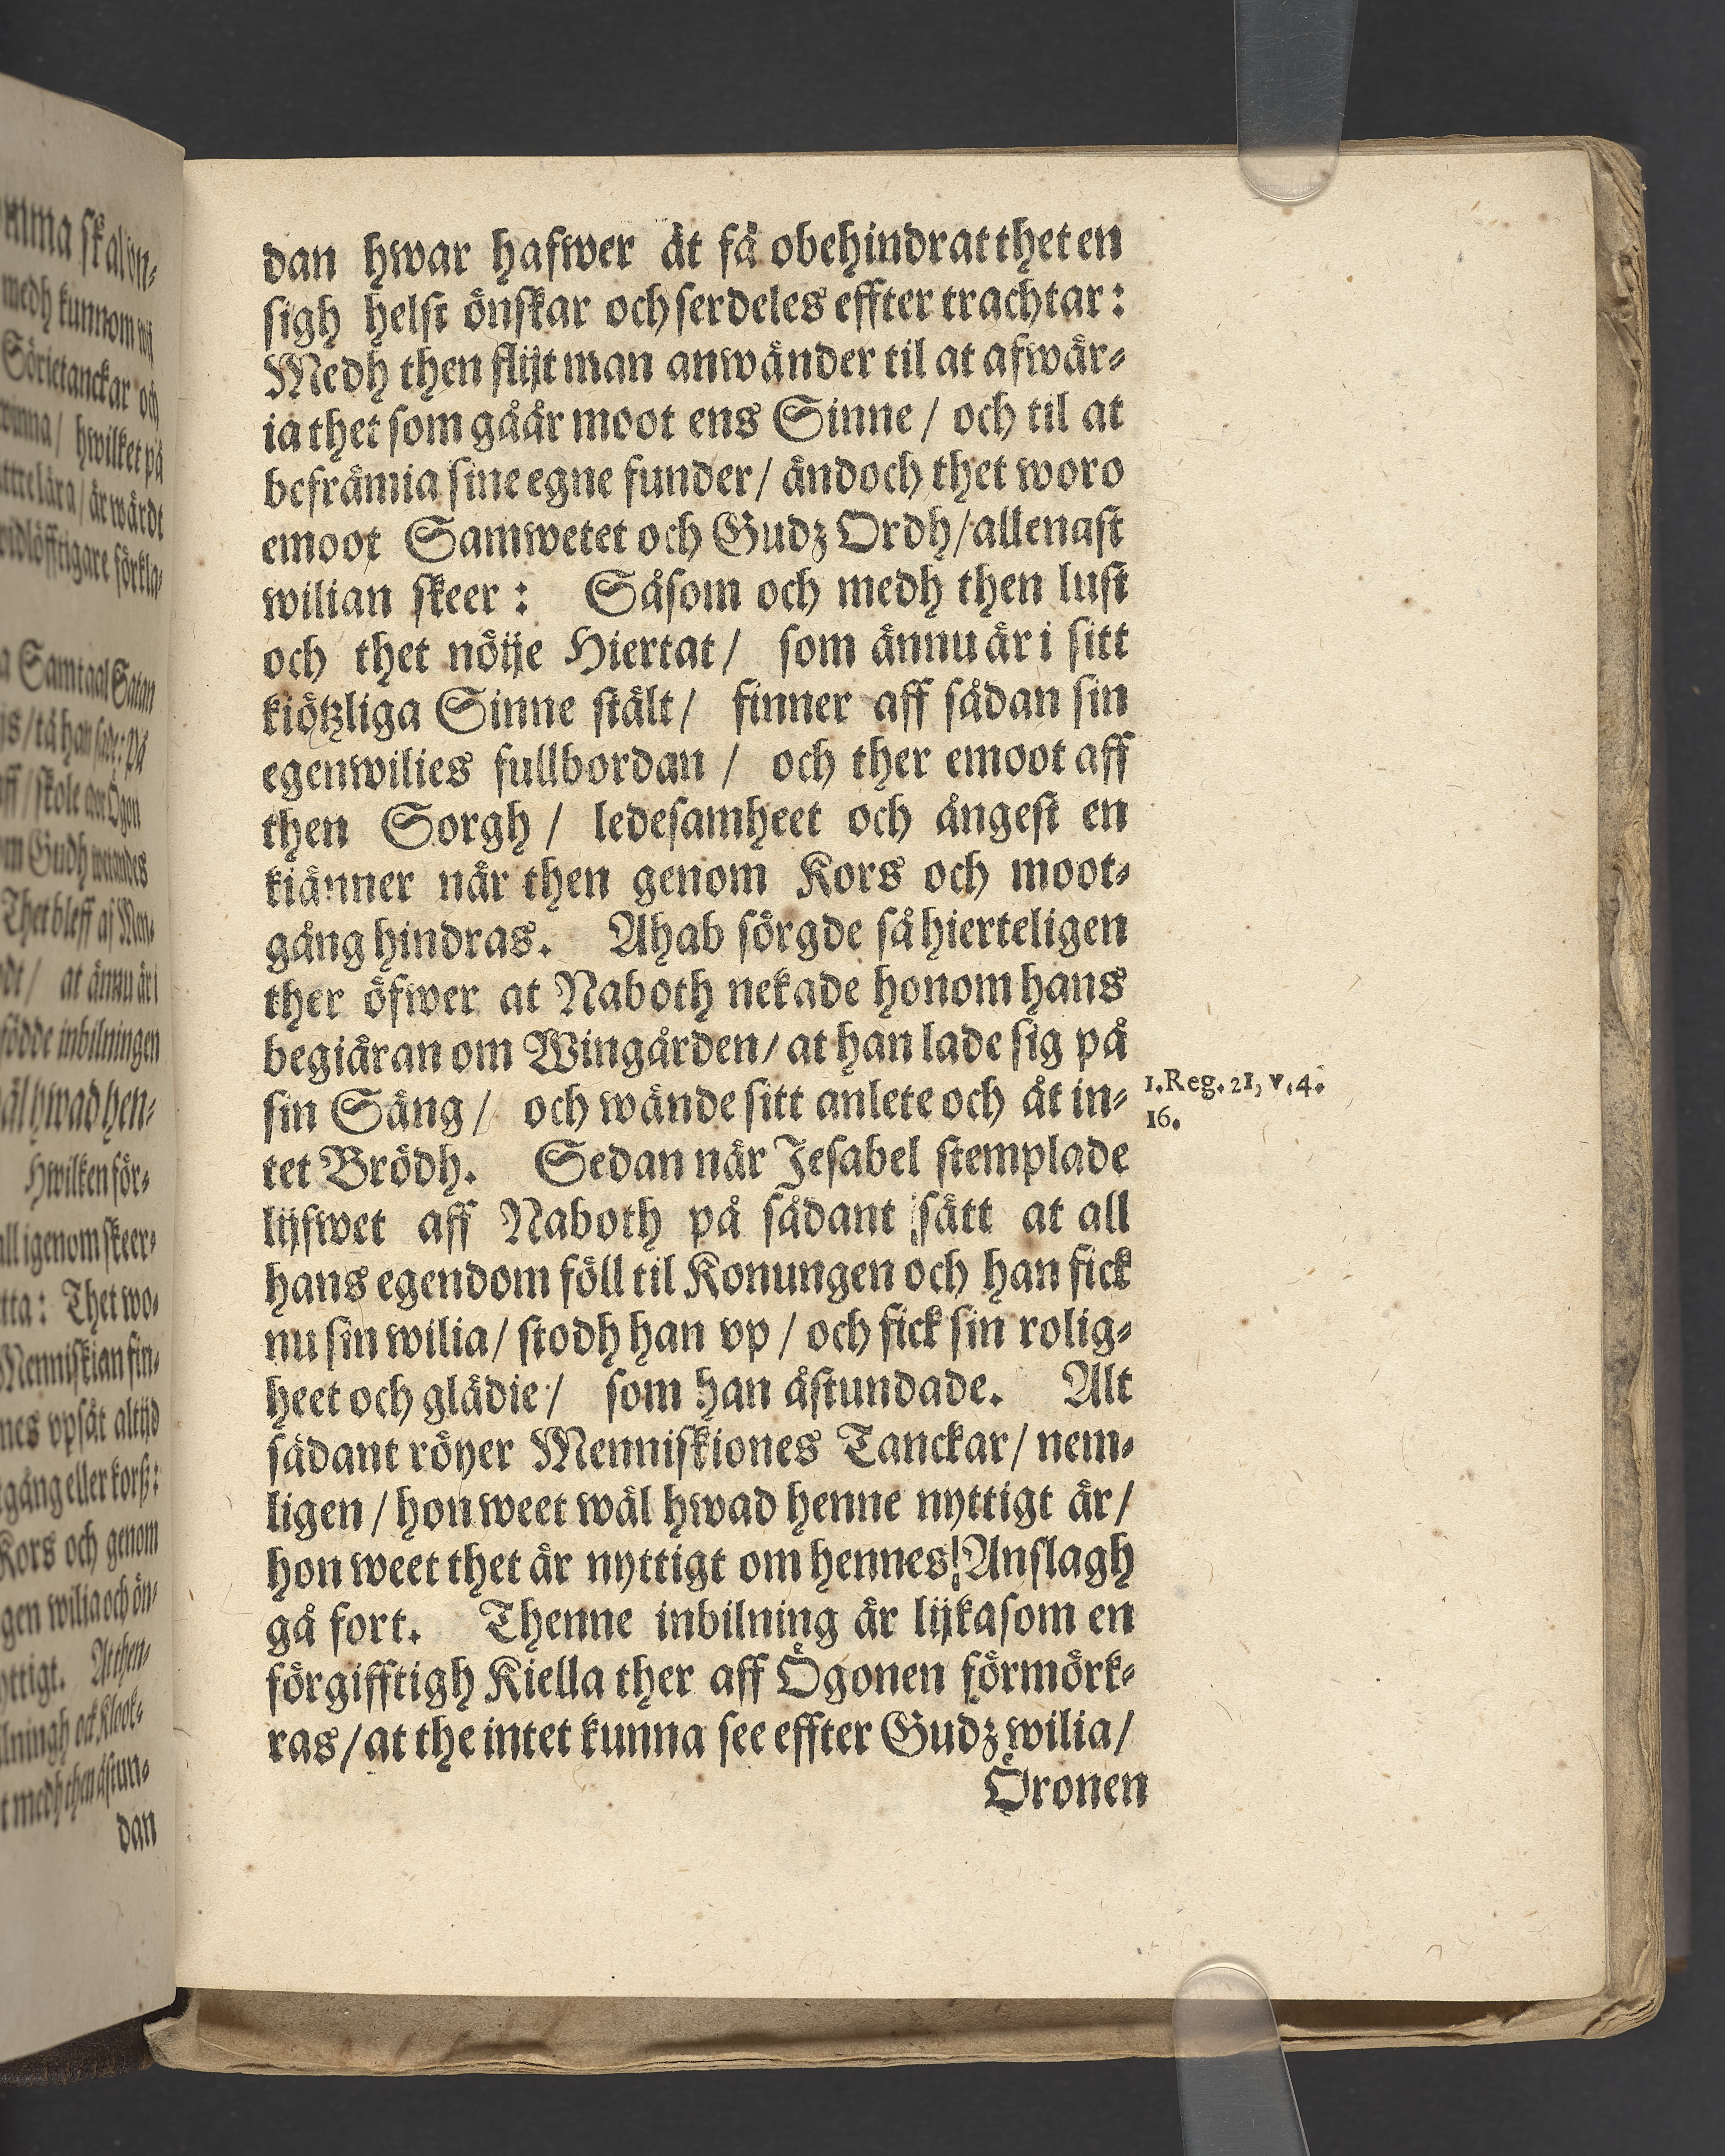 dan hwar hafwer ät få obehindrat thet en
sigh helst önskar och serdeles effter trachtar:
Medh then flijt man anwänder til at afwär-
ia thet som gåår moot ens Sinne / och til at
befrämia sine egne funder / ändoch thet woro
emoot Samwetet och Gudz Ordh / allenast
wilian skeer: Såsom och medh then lust
och thet nöije Hiertat / som ännu är i sitt
kiötzliga Sinne stält / finner aff sådan sin
egenwilies fullbordan / och ther emoot aff
then Sorgh / ledesamheet och ångest en
kiänner när then genom Kors och moot-
gång hindras. Ahab sörgde så hierteligen
ther öfwer at Naboth nekade honom hans
begiäran om Wingården / at han lade sig på
sin Säng / och wände sitt anlete och åt in-
1. Reg. 21, v. 4.
16.
tet Brödh. Sedan när Jesabel stemplade
lijfwet aff Naboth på sådant sätt at all
hans egendom föll til Konungen och han fick
nu sin wilia / stodh han vp / och fick sin rolig-
heet och glädie / som han åstundade. Alt
sådant röyer Menniskiones Tanckar / nem-
ligen / hon weet wäl hwad henne nyttigt är /
hon weet thet är nyttigt om hennes Anslagh
gå fort. Thenne inbilning är lijkasom en
förgifftigh Kiella ther aff Ögonen förmörk-
ras / at the intet kunna see effter Gudz wilia /
Öronen